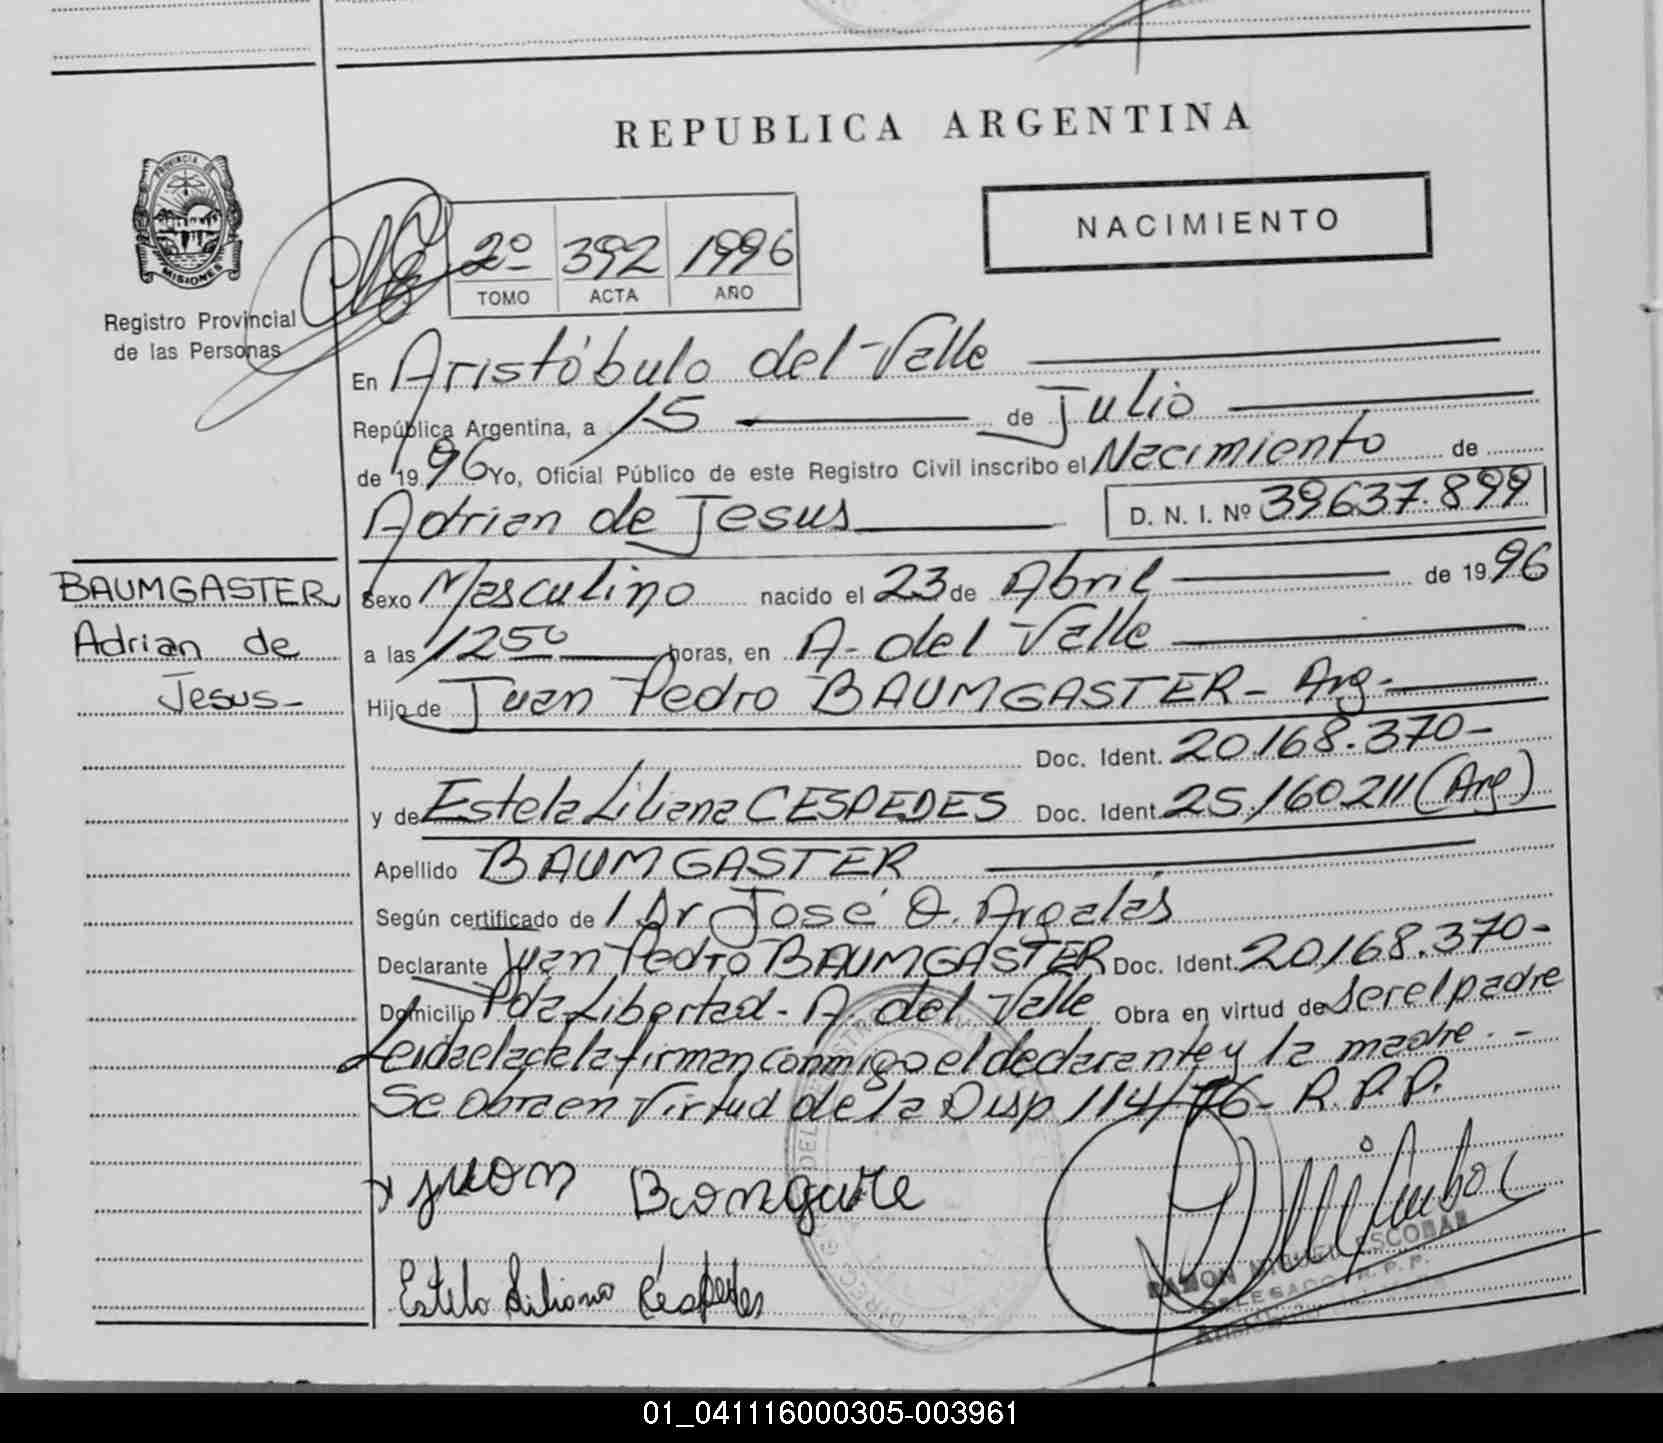 REPUBLICA ARGENTINA
PROVINCIA DE
MISIONES
Registro Provincial
de las Personas
2º 392 1996
TOMO ACTA AÑO
NACIMIENTO
En Aristóbulo del Valle
República Argentina, a 15 de Julio
de 1996 Yo, Oficial Público de este Registro Civil inscribo el Nacimiento de
Adrian de Jesus D. N. I. Nº 39637.899
BAUMGASTER
Adrian de
Jesus-
Sexo Masculino nacido el 23 de Abril de 1996
a las 1250 horas, en A. del Valle
Hijo de Juan Pedro BAUMGASTER- Arg-
Doc. Ident. 20.168.370-
y de Estela Liliana CESPEDES Doc. Ident. 25.160211 (Arg)
Apellido BAUMGASTER
Según certificado de Dr José O. Argalás
Declarante Juan Pedro BAUMGASTER Doc. Ident. 20.168.370-
Domicilio Pda Libertad- A. del Valle Obra en virtud de ser el padre
Leida el acta la firman conmigo el declarante y la madre.-
Se obra en virtud de la Disp 114/76- R.P.P.
juan
Estela Liliana Céspedes
RAMON MIGUEL ESCOBAR
DELEGADO R.P.P.
01_041116000305-003961